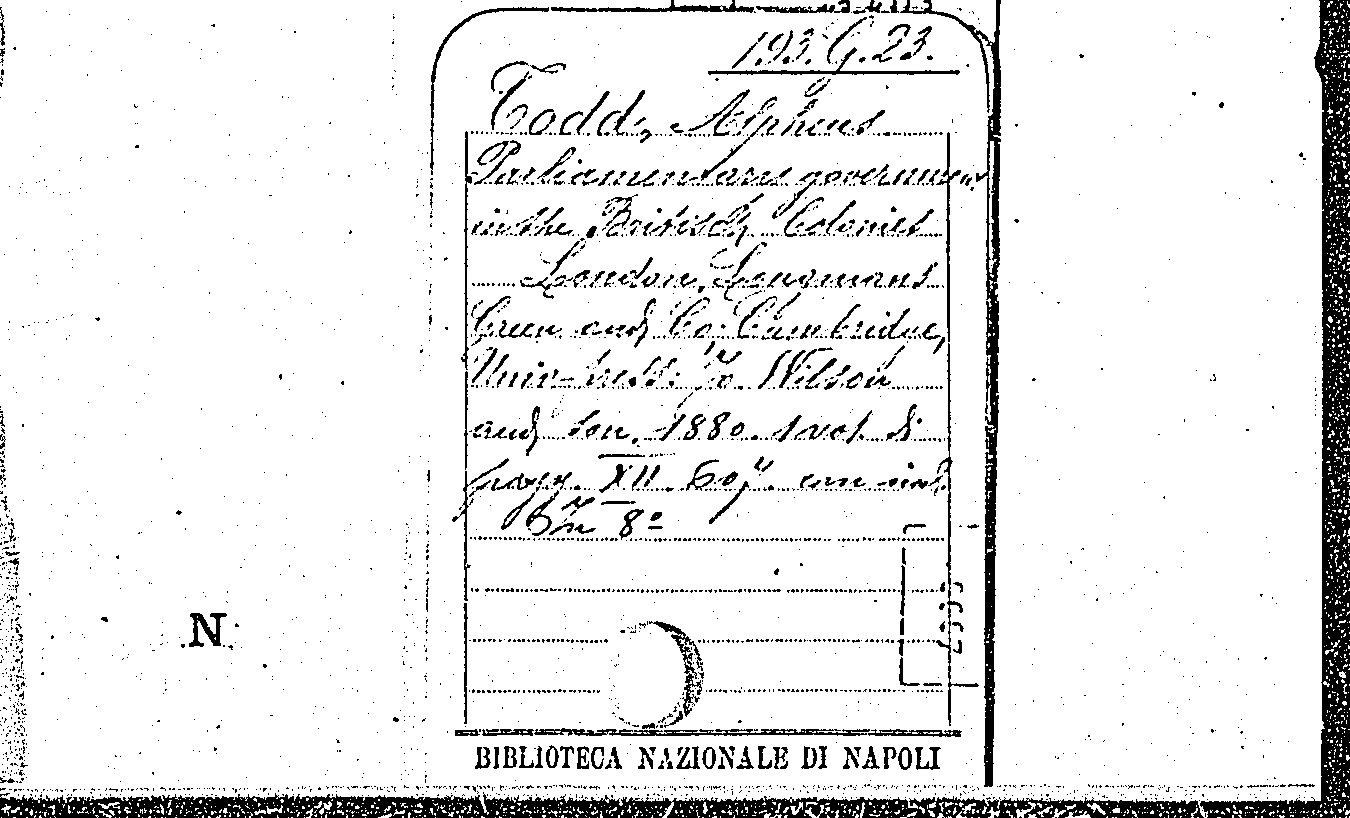 193.G.23.
Todd, Alpheus
Parliamentary government
in the British Colonies
London, Longmans
Green and Co; Cambridge,
Univ-press: Jo. Wilson
and son. 1880. 1 vol. di
pagg. XII. 607. con
In 8º
N
BIBLIOTECA NAZIONALE DI NAPOLI